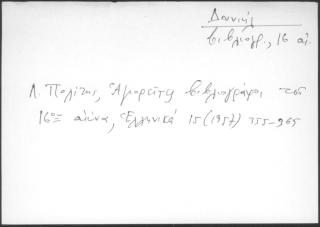 Δανιήλ
βιβλιογρ., 16 αἰ.
Λ. Πολίτης, Ἁγιορεῖτες βιβλιογράφοι τοῦ
16ου αἰώνα, Ἑλληνικά 15 (1957) 355-